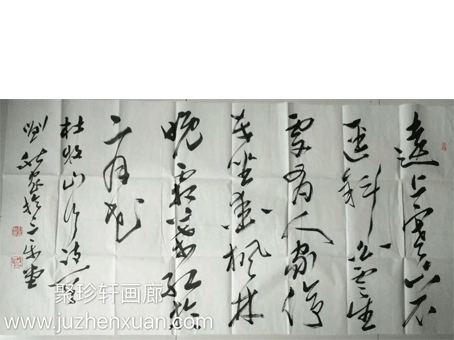 遠上寒山石
径斜白雲生
處有人家停
車坐愛楓林
晚霜葉紅於
二月花
杜牧山行詩
聚珍轩画廊
www.juzhenxuan.com